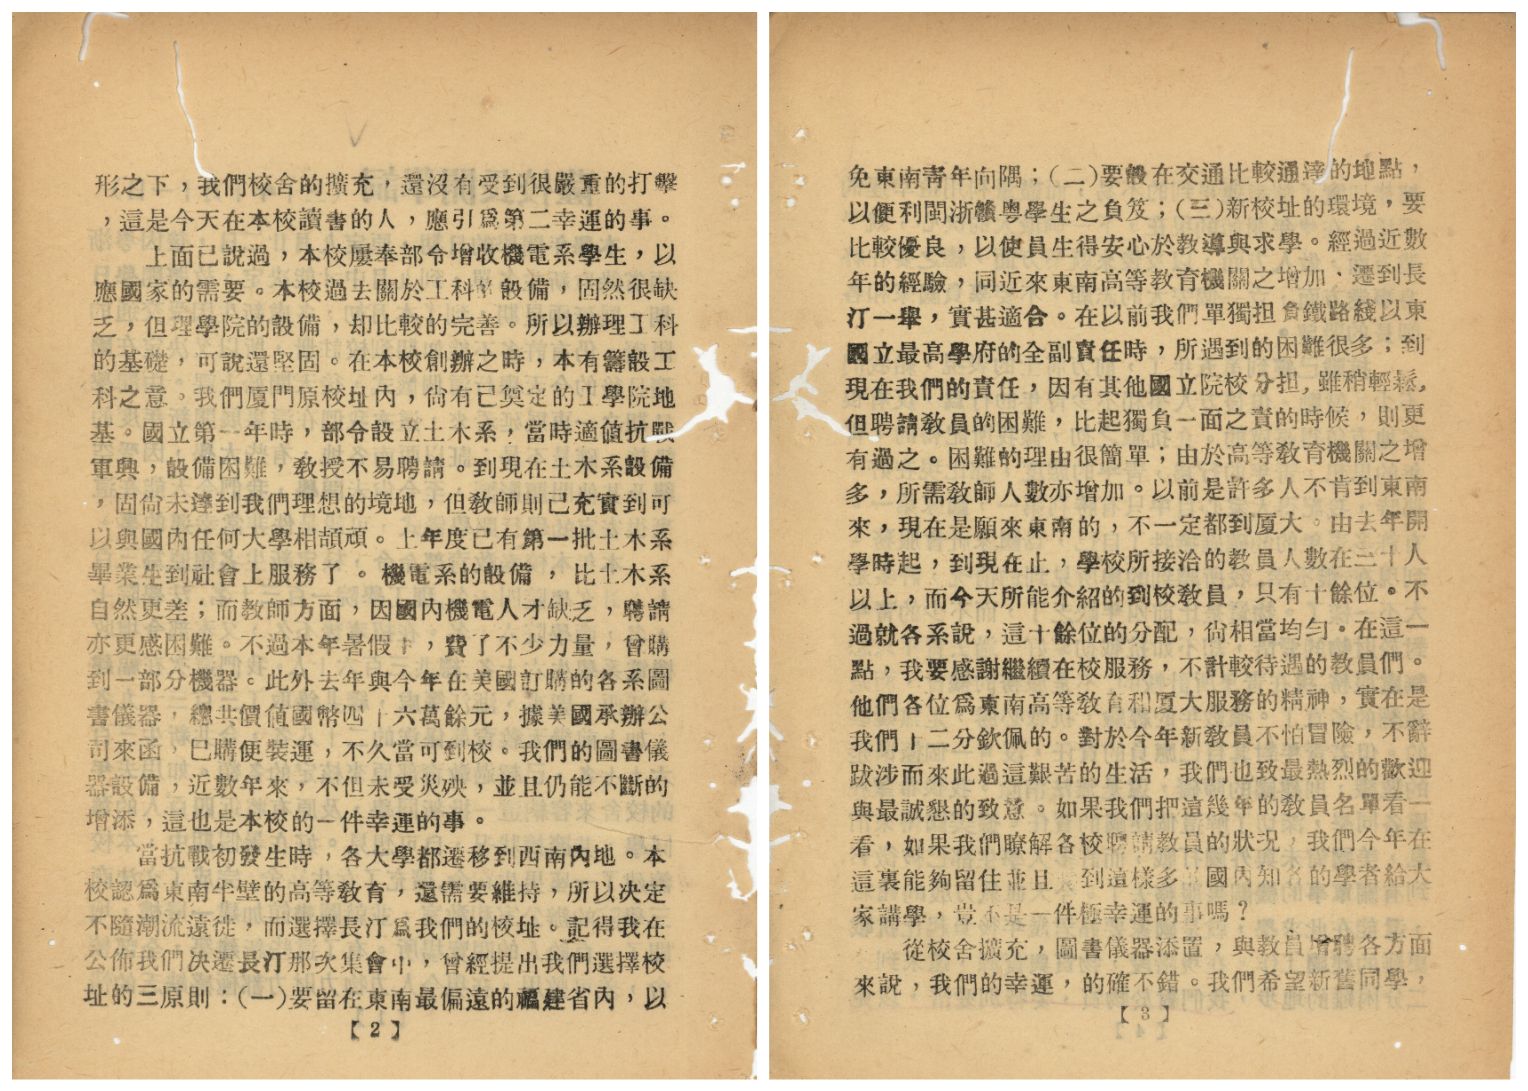 形之下，我們校舍的擴充，還沒有受到很嚴重的打擊
，這是今天在本校讀書的人，應引爲第二幸運的事。
上面已說過，本校屢奉部令增收機電系學生，以
應國家的需要。本校過去關於工科的設備，固然很缺
乏，但理學院的設備，却比較的完善。所以辦理工科
的基礎，可說還堅固。在本校創辦之時，本有籌設工
科之意。我們厦門原校址內，尙有已奠定的工學院地
基。國立第一年時，部令設立土木系，當時適值抗戰
軍興，設備困難，敎授不易聘請。到現在土木系設備
，固尙未達到我們理想的境地，但敎師則已充實到可
以與國內任何大學相頡頏。上年度已有第一批土木系
畢業生到社會上服務了。機電系的設備，比土木系
自然更差；而敎師方面，因國內機電人才缺乏，聘請
亦更感困難。不過本年暑假中，費了不少力量，曾購
到一部分機器。此外去年與今年在美國訂購的各系圖
書儀器，總共價值國幣四十六萬餘元，據美國承辦公
司來函，巳購便裝運，不久當可到校。我們的圖書儀
器設備，近數年來，不但未受災殃，並且仍能不斷的
增添，這也是本校的一件幸運的事。
當抗戰初發生時，各大學都遷移到西南內地。本
校認爲東南半壁的高等敎育，還需要維持，所以决定
不隨潮流遠徙，而選擇長汀爲我們的校址。記得我在
公佈我們决遷長汀那次集會中，曾經提出我們選擇校
址的三原則：(一)要留在東南最偏遠的福建省內，以
【2】
免東南靑年向隅；(二)要設在交通比較通達的地點，
以便利閩浙贛粵學生之負笈；(三)新校址的環境，要
比較優良，以使員生得安心於敎導與求學。經過近數
年的經驗，同近來東南高等敎育機關之增加，遷到長
汀一舉，實甚適合。在以前我們單獨担負鐵路綫以東
國立最高學府的全副責任時，所遇到的困難很多；到
現在我們的責任，因有其他國立院校分担，雖稍輕鬆，
但聘請敎員的困難，比起獨負一面之責的時候，則更
有過之。困難的理由很簡單；由於高等敎育機關之增
多，所需敎師人數亦增加。以前是許多人不肯到東南
來，現在是願來東南的，不一定都到厦大。由去年開
學時起，到現在止，學校所接洽的敎員人數在三十人
以上，而今天所能介紹的到校敎員，只有十餘位。不
過就各系說，這十餘位的分配，尙相當均勻。在這一
點，我要感謝繼續在校服務，不計較待遇的敎員們。
他們各位爲東南高等敎育和厦大服務的精神，實在是
我們十二分欽佩的。對於今年新敎員不怕冒險，不辭
跋涉而來此過這艱苦的生活，我們也致最熱烈的歡迎
與最誠懇的致意。如果我們把這幾年的敎員名單看一
看，如果我們瞭解各校聘請敎員的狀况，我們今年在
這裏能夠留住並且到這樣多國內知名的學者給大
家講學，豈不是一件極幸運的事嗎？
從校舍擴充，圖書儀器添置，與敎員增聘各方面
來說，我們的幸運，的確不錯。我們希望新舊同學，
【3】